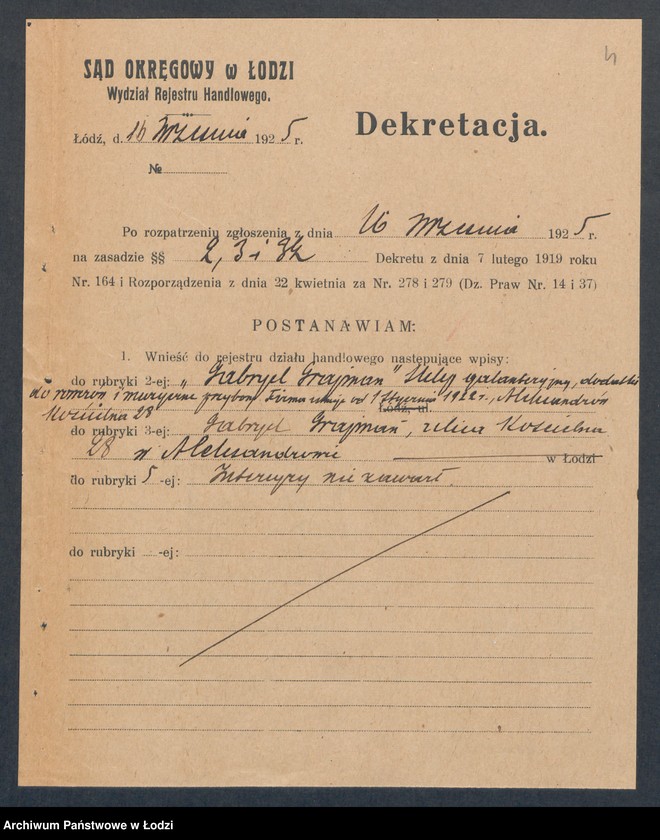 4
SĄD OKRĘGOWY w ŁODZI
Wydział Rejestru Handlowego.
Dekretacja.
Łódź, d. 16 Września 1925 r.
№
Po rozpatrzeniu zgłoszenia z dnia 16 Września 1925 r.
na zasadzie §§ 2, 3 i 32 Dekretu z dnia 7 lutego 1919 roku
Nr. 164 i Rozporządzenia z dnia 22 kwietnia za Nr. 278 i 279 (Dz. Praw Nr. 14 i 37)
POSTANAWIAM:
1. Wnieść do rejestru działu handlowego następujące wpisy:
do rubryki 2-ej: „Gabryel Grajman" Sklep galanteryjny, dodatki
do i przybory Firma istnieje od 1 Stycznia 1922 r., Aleksandrów
Łódź, ul.
Kościelna 28
do rubryki 3-ej: Gabryel Grajman, ulica Kościelna
28 w Aleksandrowie w Łodzi
do rubryki 5-ej: Intercyzy nie zawarł
do rubryki -ej:
Archiwum Państwowe w Łodzi